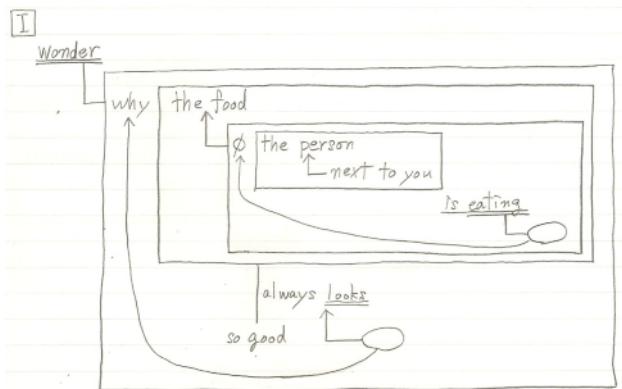 I
wonder
why the food
∅ the person
next to you
is eating
always looks
so good